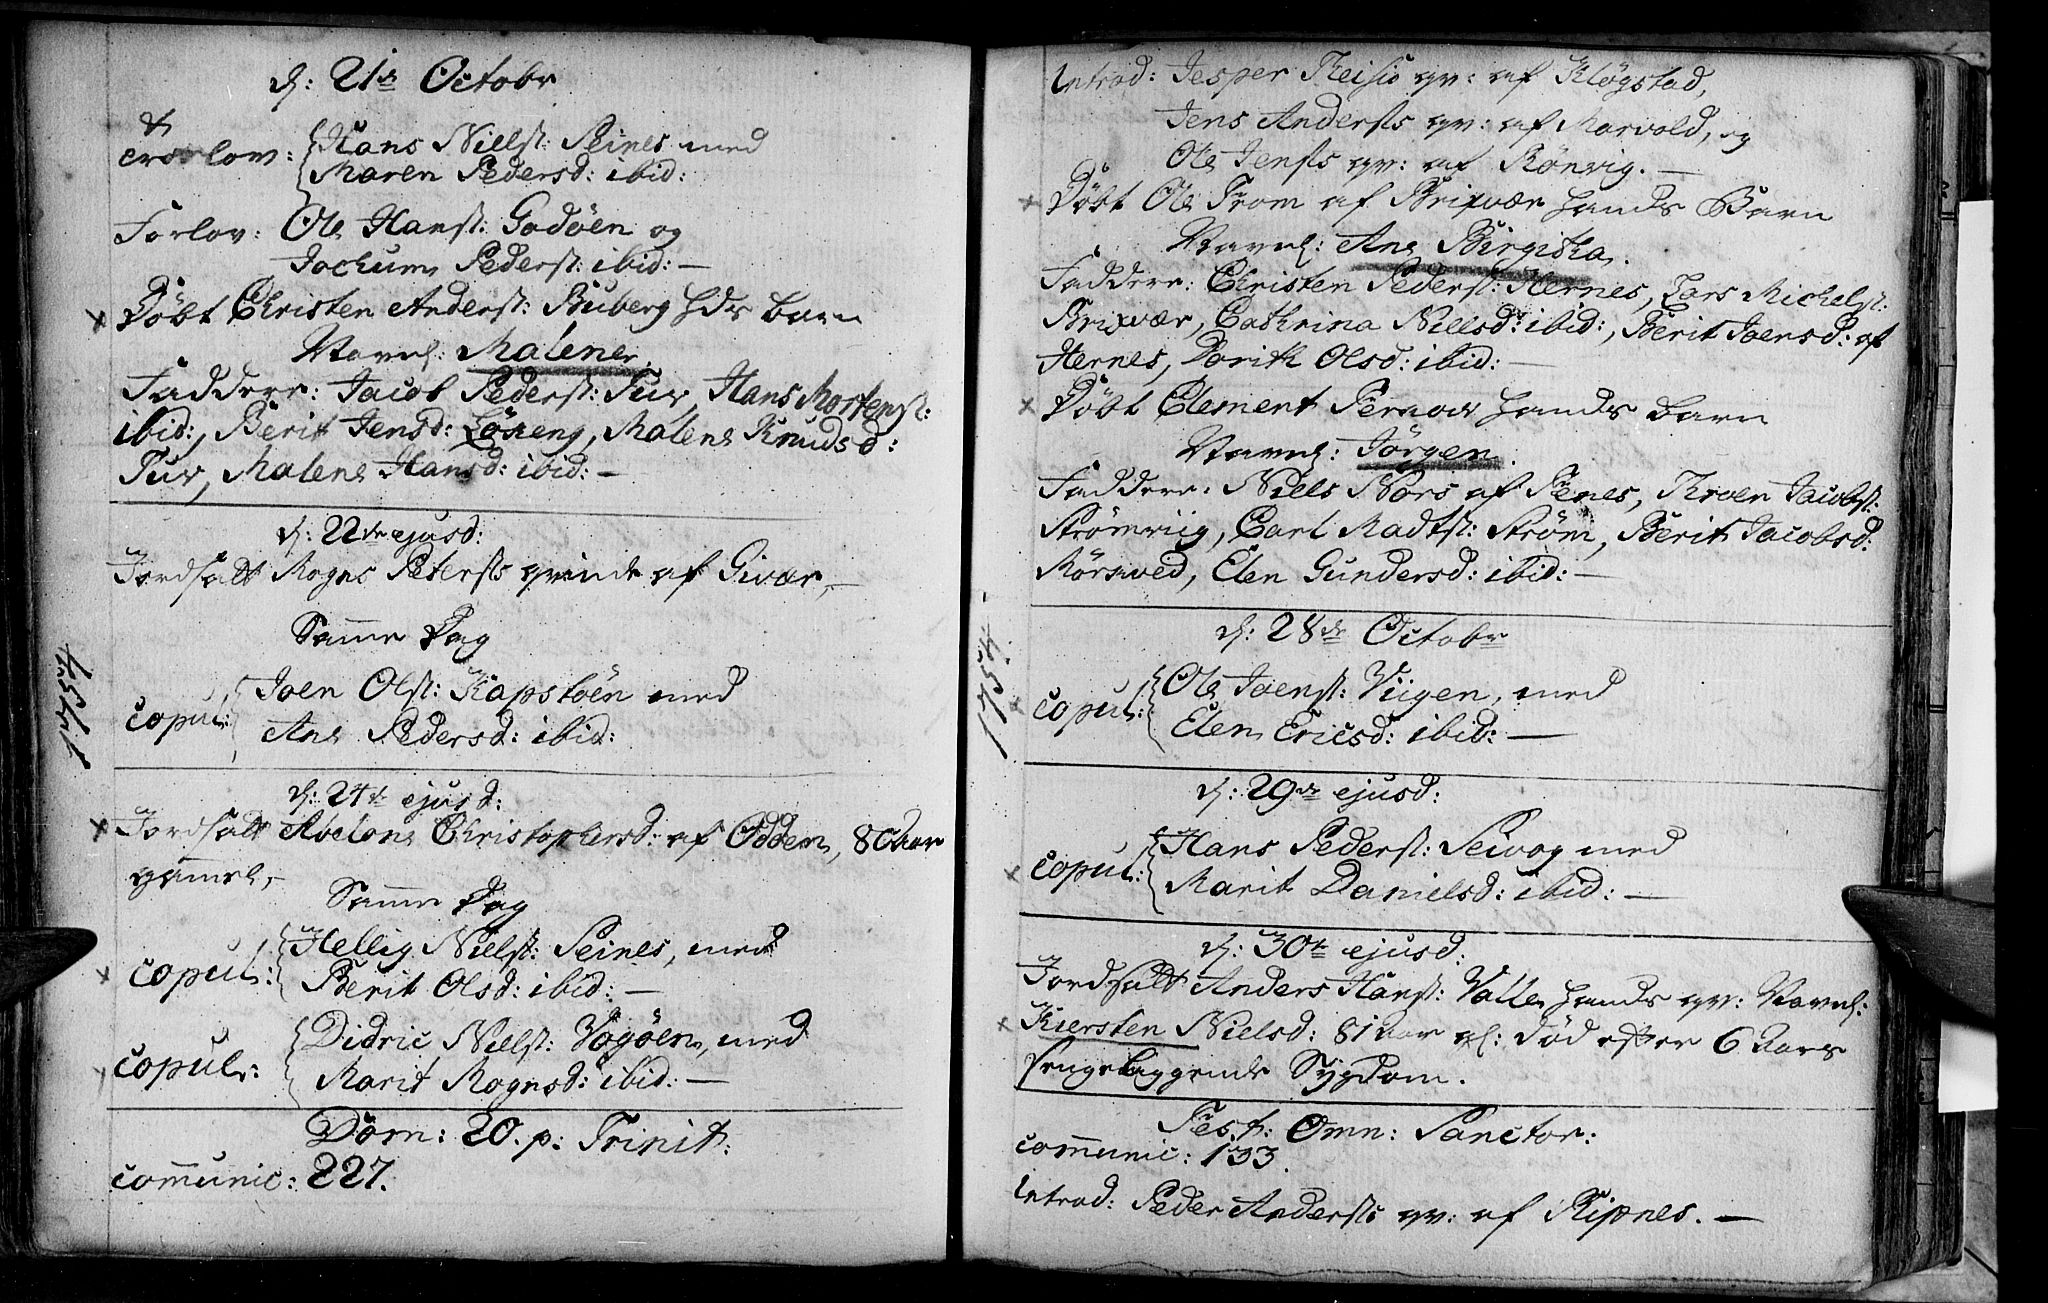 d: 21de Octobr
Trolov: Hans Nielss: Seines med
Maren Pedersd: ibid:
Forlov: Ole Hanss: Godøen og
Jochum Peders: ibid: —
Døbt Christen Anders: Buberg Hds barn
Navnl: Malene.
Faddere: Jacob Peders: Tuv, Hans Mortens:
ibid:, Berit Jensd: Løkeng, Malene Knudsd:
Tuv, Malene Hansd: ibid: —
d: 22de ejusd:
Jordfæst Mogns Peters qvinde af Givær, —
Samme Dag
1754
copul: Joen Ols: Kapstøen med
Ane Pedersd: ibid:
d: 24de ejusd:
Jordfæst Abelone Christophersd: af Odden, 80 Aar
gammel, —
Samme Dag
copul: Hellig Niels: Seines, med
Berit Olsd: ibid: —
copul: Didric Niels: Vogøen, med
Marit Mognsd: ibid: —
Dom: 20. p: Trinit:
communic: 227.
Introd: Jesper qv: af Kløgstad,
Jens Anders qv: af Marvold, og
Ole Jens qv: af Rønvig. —
Døbt Ole From af Brixvær hands Barn
Navnl: Ane Birgitha.
Faddere: Christen Peders: Hernes, Lars Michels:
Brixvær, Cathrina Nielsd: ibid:, Berit Joensd: af
Hernes, Dorith Olsd: ibid: —
Døbt Clement hands barn
Navnl: Jørgen.
Faddere: Niels Nors af Senes, Jacobs:
Strømviig, Carl Madts: Strøm, Berit Jacobsd:
Rørsved, Elen Gundersd: ibid: —
1754
d: 28de Octobr
copul: Ole Joens: Viigen, med
Elen Ericsd: ibid: —
d: 29de ejusd:
copul: Hans Peders: Seivog med
Marit Danielsd: ibid: —
d: 30te ejusd:
Jordfæst Anders Hans: Valle hands qv: Navnl:
Kiersten Nielsd: 81 Aar gl: død efter 6 Aars
sengeliggende Sygdom.
Fest: Omn: Sanctor:
communic: 133.
Introd: Peder Anders qv: af Ripnes. —